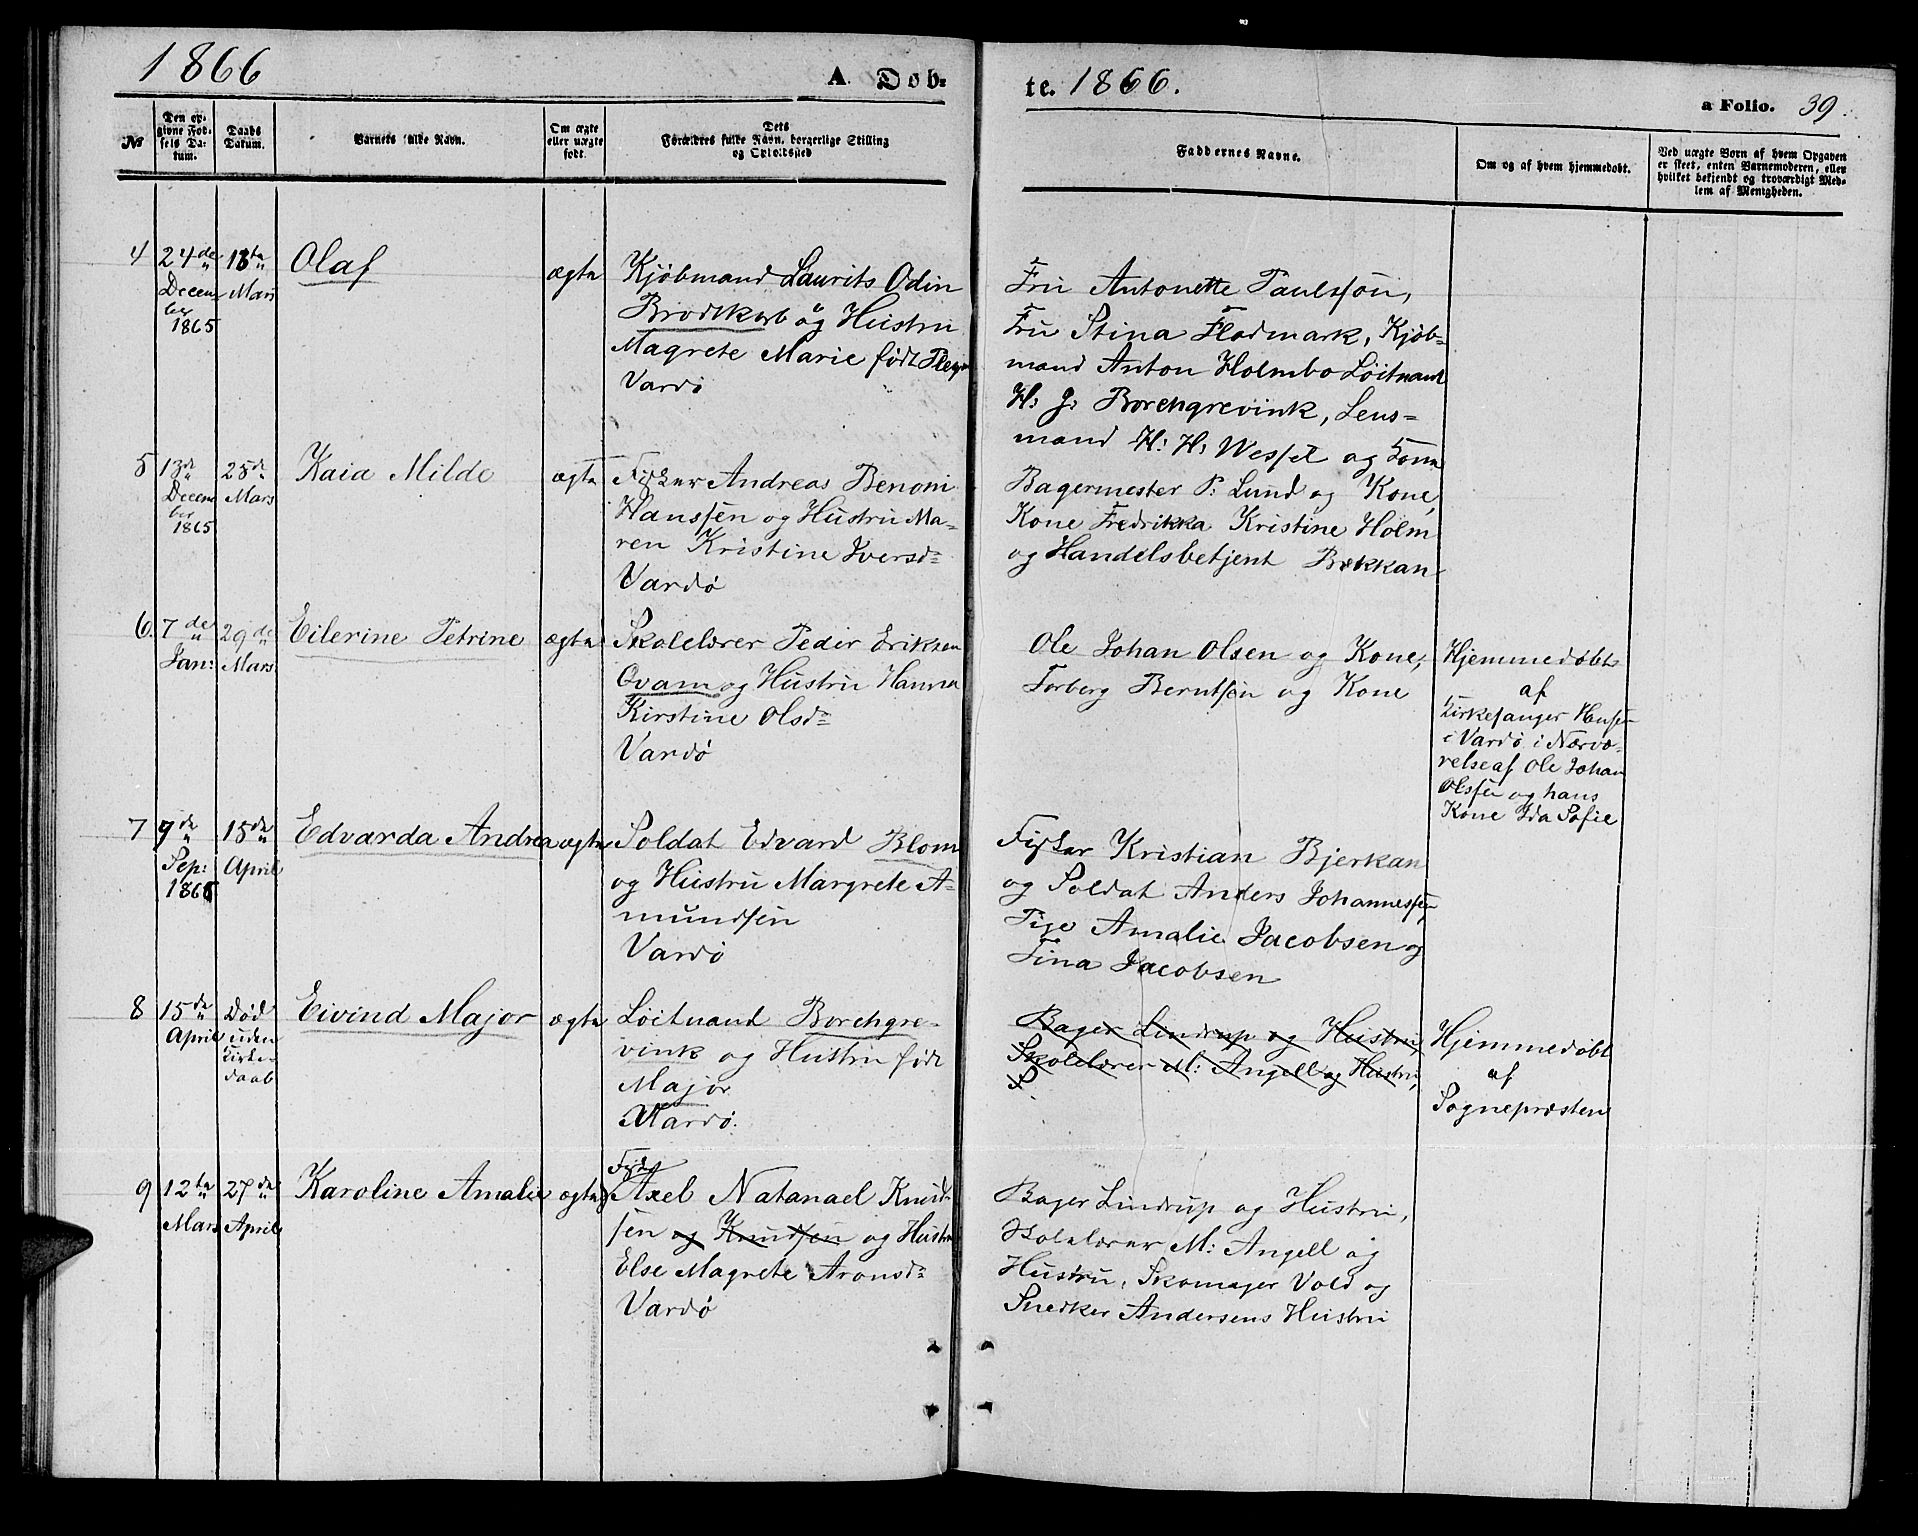 1866
A. Døb-
te. 1866.
a Folio. 39.
No
Den op-
givne Fød-
sels Da-
tum.
Daabs
Datum.
Barnets fulde Navn.
Om ægte
eller uægte
født.
Dets
Forældres fulde Navn, borgerlige Stilling
og Opholdssted
Faddernes Navne.
Om og af hvem hjemmedøbt.
Ved uægte Børn af hvem Opgaven
er skeet, enten Barnemoderen, eller
hvilket bekjendt og troværdigt Med-
lem af Menigheden.
4
24de
Decem
ber
1865
18te
Mars
Olaf
ægte
Kjøbmand Laurits Odin
Brodtkorb og Hustru
Magrete Marie født
Vardø
Fru Antonette Paulssøn,
Fru Stina Flodmark, Kjøb-
mand Anton Holmbo Løitnant
H: J: Borchgrevink, Lens-
mand H: H: Wessel og Kone
5
13de
Decem
ber
1865
25de
Mars
Kaia Milde
ægte
Fisker Andreas Benoni
Hanssen og Hustru Ma-
ren Kristine Iversd=
Vardø
Bagermester P: Lund og Kone,
Kone Fredrikka Kristine Holm
og Handelsbetjent Bækkan
6.
7de
Jan:
29de
Mars
Eilerine Petrine
ægte
Skolelærer Peder Eriksen
Qvam og Hustru Hanna
Kirstine Olsd=
Vardø
Ole Johan Olsen og Kone,
Torberg Berntsen og Kone
Hjemmedøbt
af
Kirkesanger Hansen
i Vardø i Nærvæ-
relse af Ole Johan
Olssen og hans
Kone Ida Sofie
7
9de
Sep:
1865
15de
April
Edvarda Andrea
ægte
Soldat Edvard Blom
og Hustru Margrete A-
mundsen
Vardø
Fisker Kristian Bjerkan
og Soldat Anders Johannessen,
Pige Amalie Jacobsen og
Tina Jacobsen
8
15de
April
Død
uden
Kirke
daab
Eivind Major
ægte
Løitnand Borchgre-
vink og Hustru født
Major
Vardø.
Bager Lindrup og Hustru,
Skolelærer M: Angell og Hustru,
S
Hjemmedøbt
af
Sognepræsten
9
12te
Mars
27de
April
Karoline Amalie
ægte
Fisker
Axel Natanael Knud-
sen og Knudsen og Hustru
Else Magrete Aronsd=
Vardø
Bager Lindrup og Hustru,
Skolelærer M: Angell og
Hustru, Skomager Vold og
Snedker Andersens Hustru